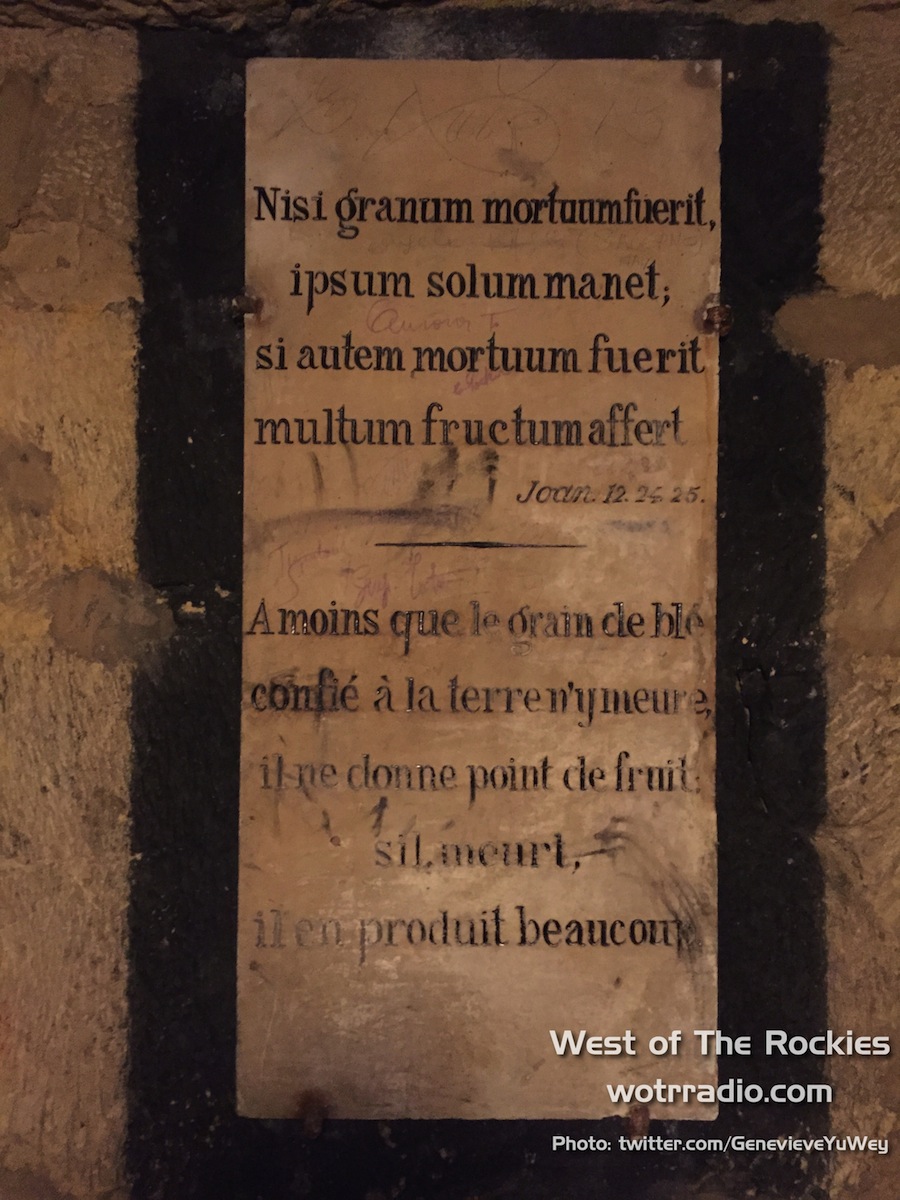 Nisi granum mortuum fuerit,
ipsum solum manet;
si autem mortuum fuerit
multum fructum affert
Joan. 12. 24. 25.
A moins que le grain de blé
confié à la terre n'y meure,
il ne donne point de fruit;
s'il meurt,
il en produit beaucoup
West of The Rockies
wotrradio.com
Photo: twitter.com/GenevieveYuWey